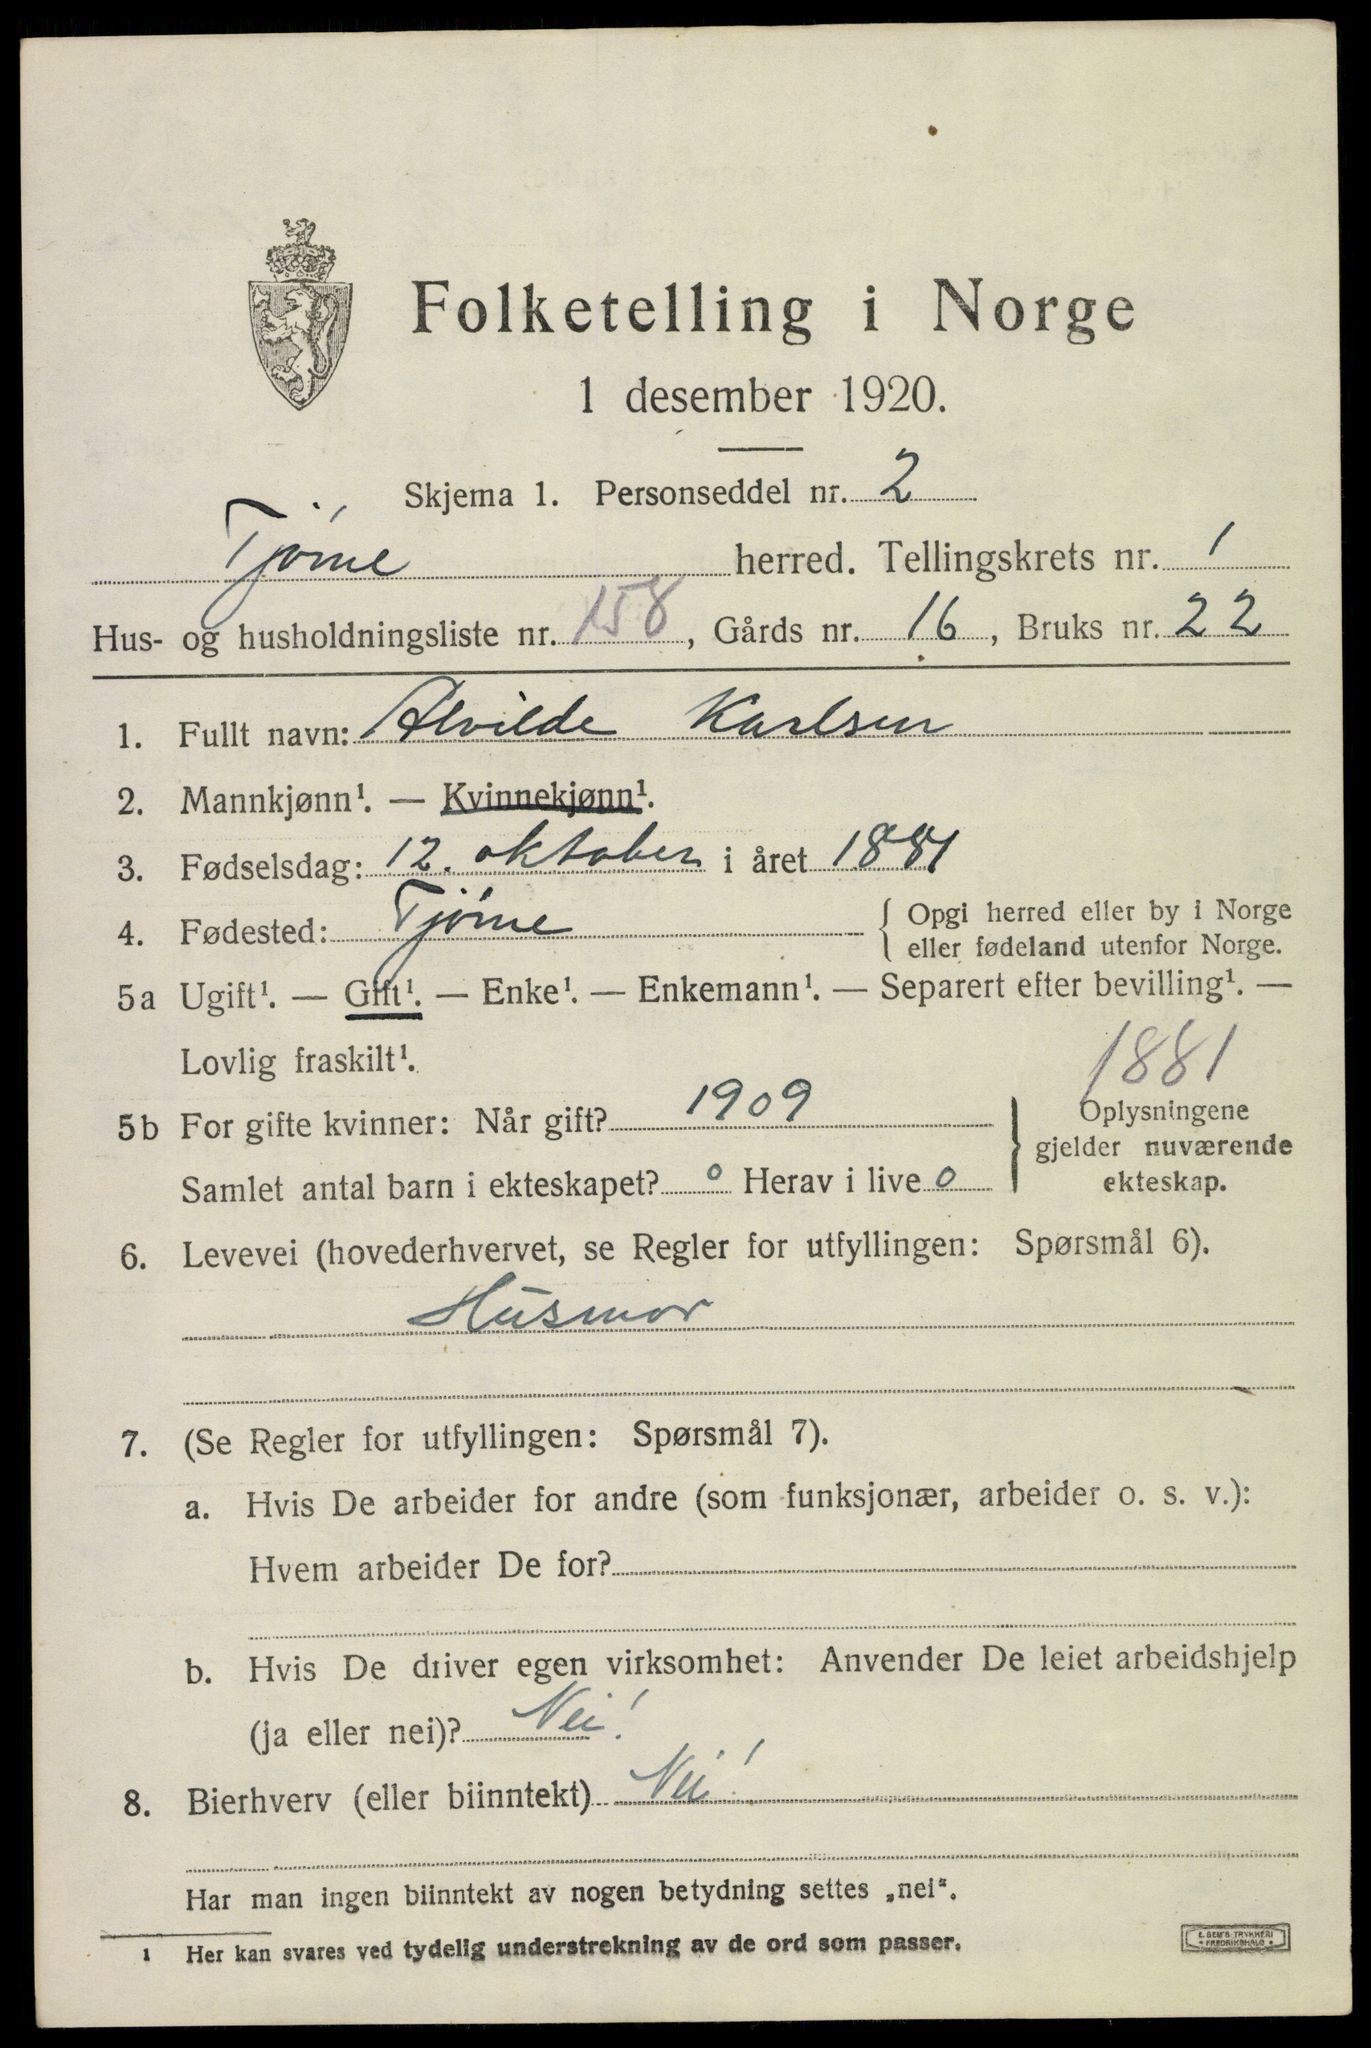 Folketelling i Norge
1 desember 1920.
Skjema 1. Personseddel nr. 2
Tjøme herred. Tellingskrets nr. 1
Hus- og husholdningsliste nr. 158, Gårds nr. 16, Bruks nr. 22
1. Fullt navn: Alvilde Karlsen
2. Mannkjønn¹. — Kvinnekjønn¹.
3. Fødselsdag: 12. oktober i året 1881
4. Fødested: Tjøme { Opgi herred eller by i Norge
eller fødeland utenfor Norge.
5a Ugift¹. — Gift¹. — Enke¹. — Enkemann¹. — Separert efter bevilling¹. —
Lovlig fraskilt¹.
1881
5b For gifte kvinner: Når gift? 1909
Samlet antal barn i ekteskapet? 0 Herav i live 0
} Oplysningene
gjelder nuværende
ekteskap.
6. Levevei (hovederhvervet, se Regler for utfyllingen: Spørsmål 6).
Husmor
7. (Se Regler for utfyllingen: Spørsmål 7).
a. Hvis De arbeider for andre (som funksjonær, arbeider o. s. v.):
Hvem arbeider De for?
b. Hvis De driver egen virksomhet: Anvender De leiet arbeidshjelp
(ja eller nei)? Nei!
8. Bierhverv (eller biinntekt) Nei!
Har man ingen biinntekt av nogen betydning settes „nei“.
¹ Her kan svares ved tydelig understrekning av de ord som passer.
E. SEM'S TRYKKERI
FREDRIKSHALD